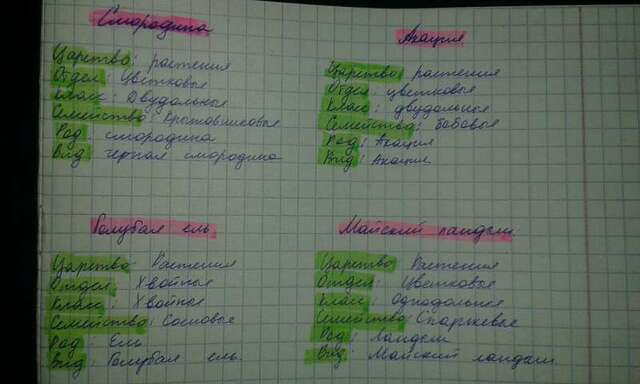 Смородина
Царство: растения
Отдел: Цветковые
Класс: Двудольные
Семейство: Крыжовниковые
Род: смородина
Вид: черная смородина
Акация
Царство: растения
Отдел: цветковые
Класс: двудольные
Семейство: бобовые
Род: Акация
Вид: Акация
Голубая ель
Царство: Растения
Отдел: Хвойные
Класс: Хвойные
Семейство: Сосновые
Род: Ель
Вид: Голубая ель.
Майский ландыш
Царство: Растения
Отдел: Цветковые
Класс: Однодольные
Семейство: Спаржевые
Род: Ландыш
Вид: Майский ландыш.